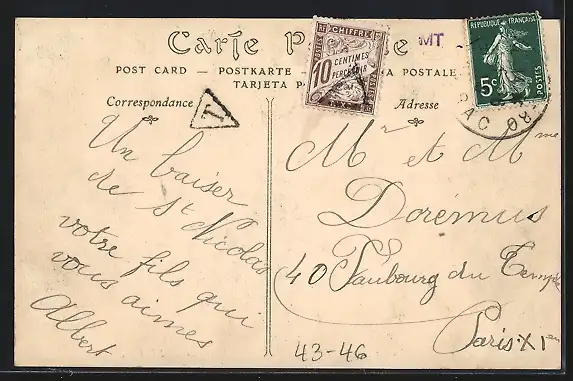 Carte P ale
MT
POST CARD — POSTKARTE — A POSTALE
TARJETA P
Correspondance
Adresse
CHIFFRE
10 CENTIMES
PERCEVOIR
T
T
RÉPUBLIQUE FRANÇAISE
5c
POSTES
Un baiser
de St Nicolas
votre fils qui
vous aimes
Albert
Mr et Mme
Dorémus
40 Faubourg du Temple
Paris XIem
43-46